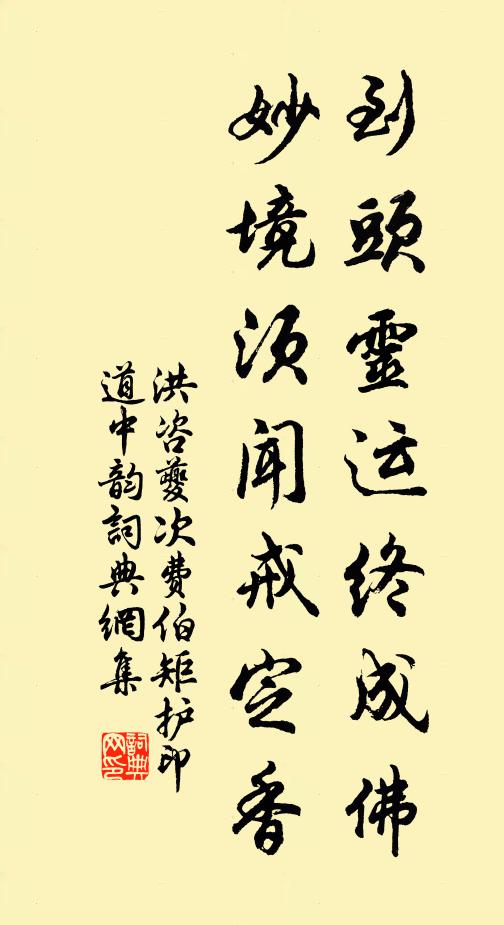 到頭靈运終成佛
妙境須聞戒定香
洪咨夔次費伯矩护印
道中韵詞典網集
詞典
网印